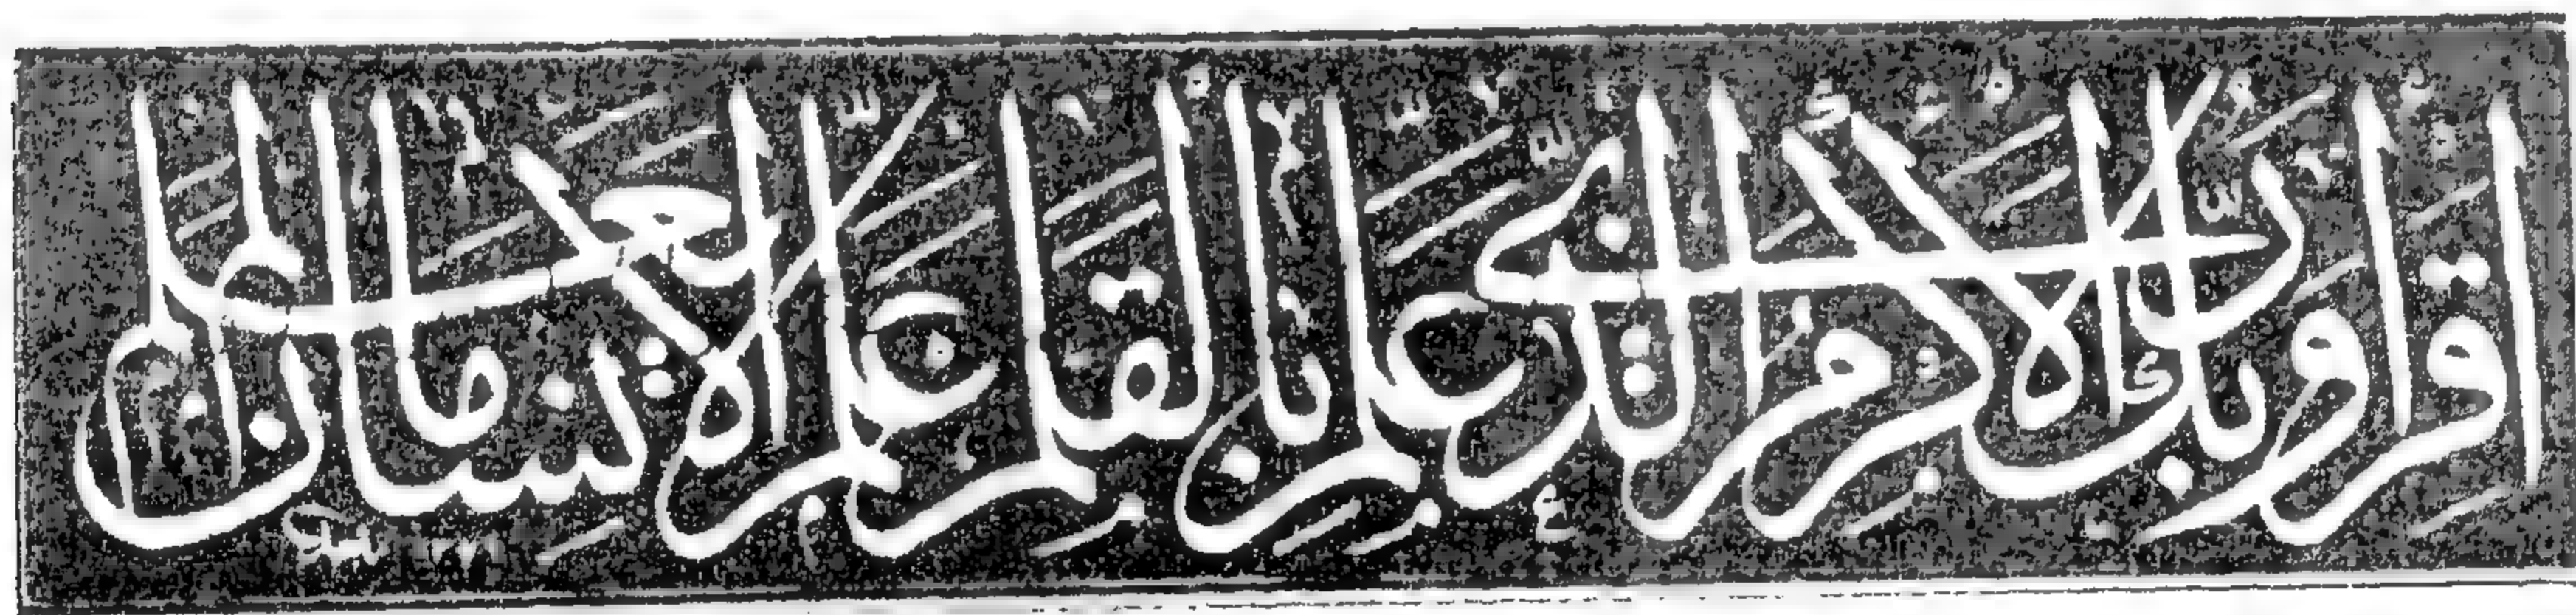 اقرأ وربك الأكرم الذي علم بالقلم علم الإنسان ما لم يعلم